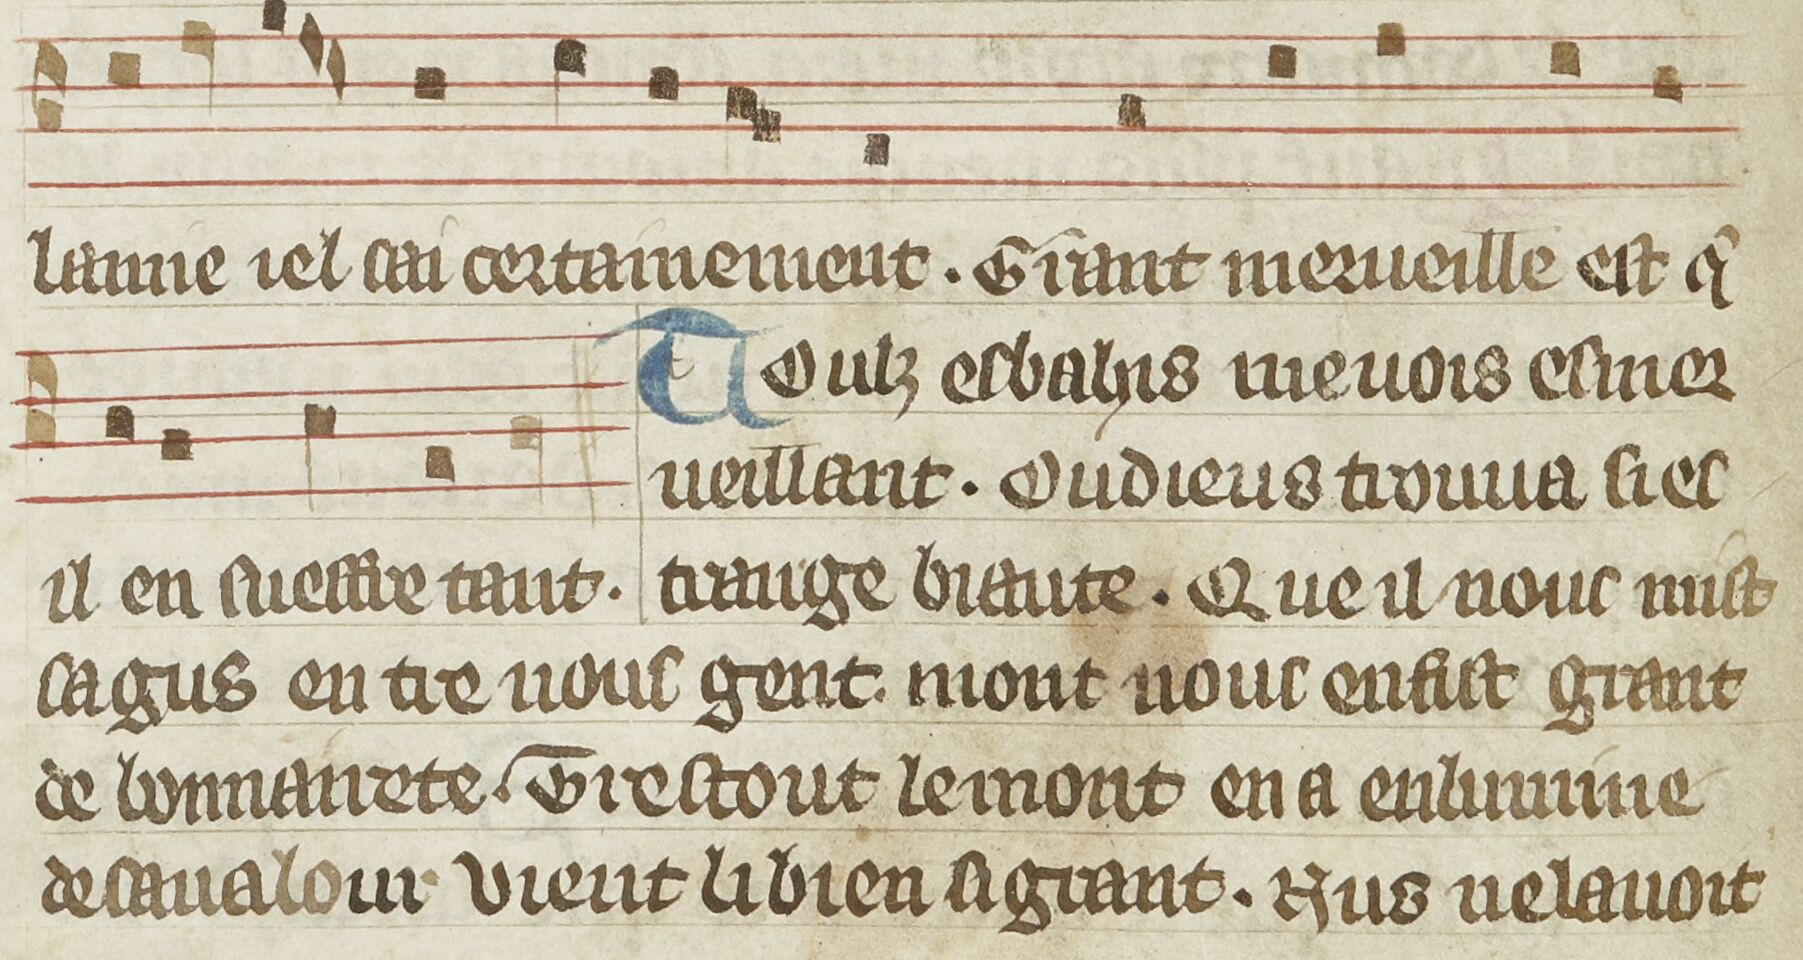 lanme iel sai certainement. Grant merueille est q̃
il en sueffre tant.
Toulz esbahis me uois esmer
ueillant. Ou dieus trouua si es
trange biaute. Que il nous mist
ca gus en tre nous gent. mont nous en fist grant
de bonnairete. Trestout le mont en a enlumine
de sa ualour vient li bien si grant. Nus ne la uoit